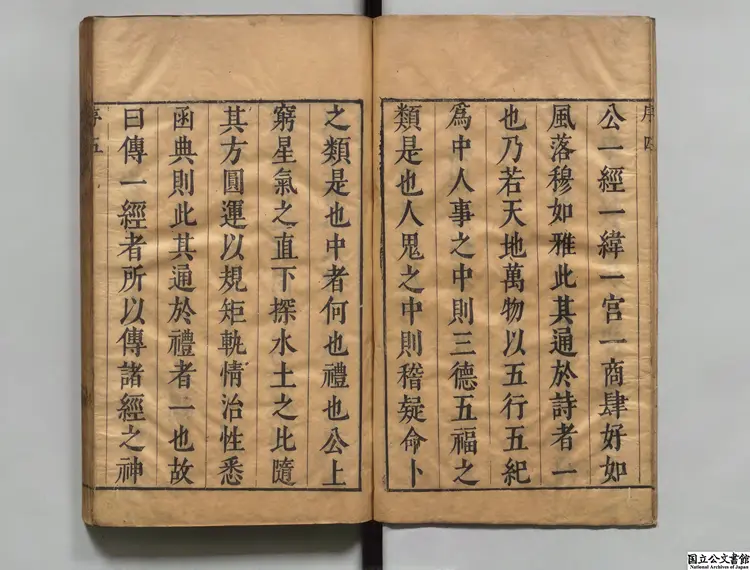 序四
公一經一緯一宫一商肆好如
風落穆如雅此其通於詩者一
也乃若天地萬物以五行五紀
爲中人事之中則三德五福之
類是也人鬼之中則稽疑命卜
之類是也中者何也禮也公上
窮星氣之直下探水土之比隨
其方圓運以規矩軌情治性悉
函典則此其通於禮者一也故
曰傳一經者所以傳諸經之神
序五
国立公文書館
National Archives of Japan